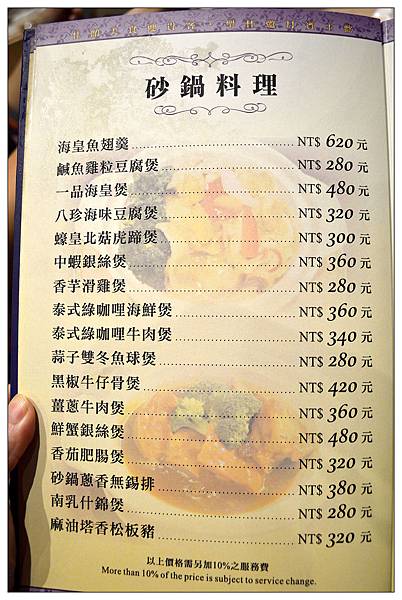 砂鍋料理
海皇魚翅羹 NT$ 620 元
鹹魚雞粒豆腐煲 NT$ 280 元
一品海皇煲 NT$ 480 元
八珍海味豆腐煲 NT$ 320 元
蠔皇北菇虎蹄煲 NT$ 300 元
中蝦銀絲煲 NT$ 360 元
香芋滑雞煲 NT$ 280 元
泰式綠咖哩海鮮煲 NT$ 360 元
泰式綠咖哩牛肉煲 NT$ 340 元
蒜子雙冬魚球煲 NT$ 280 元
黑椒牛仔骨煲 NT$ 420 元
薑蔥牛肉煲 NT$ 360 元
鮮蟹銀絲煲 NT$ 480 元
香茄肥腸煲 NT$ 320 元
砂鍋蔥香無錫排 NT$ 380 元
南乳什錦煲 NT$ 280 元
麻油塔香松板豬 NT$ 320 元
以上價格需另加10%之服務費
More than 10% of the price is subject to service change.